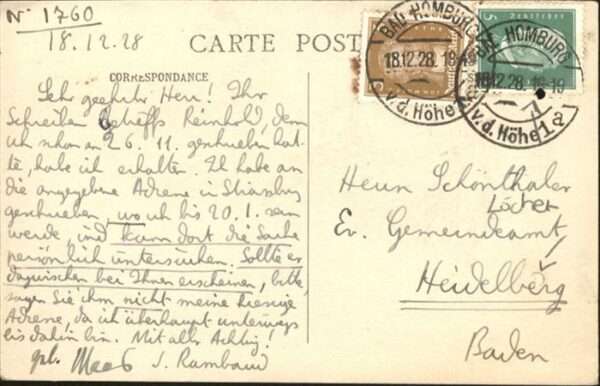 N° 1760
18.12.28
CARTE POST
CORRESPONDANCE
BAD HOMBURG
18.12.28. 18-19
v.d. Höhe
5
BAD HOMBURG
18.12.28. 18-19
v.d. Höhe 1a
Sehr geehrter Herr! Ihr
Schreiben betreffs Reinhold, dem
ich schon am 26. 11. geschrieben hat-
te, habe ich erhalten. Ich habe an
die angegebene Adresse in Strassburg
geschrieben, wo ich bis 20.1. sein
werde, und kann dort die Sache
persönlich untersuchen. Sollte er
dazwischen bei Ihnen erscheinen, bitte,
sagen Sie ihm nicht meine hiesige
Adresse, da ich überhaupt unterwegs
bis dahin bin. Mit aller Achtung!
J. Rambaud
Herrn Schönthaler
Löcher
Ev. Gemeindeamt
Heidelberg
Baden